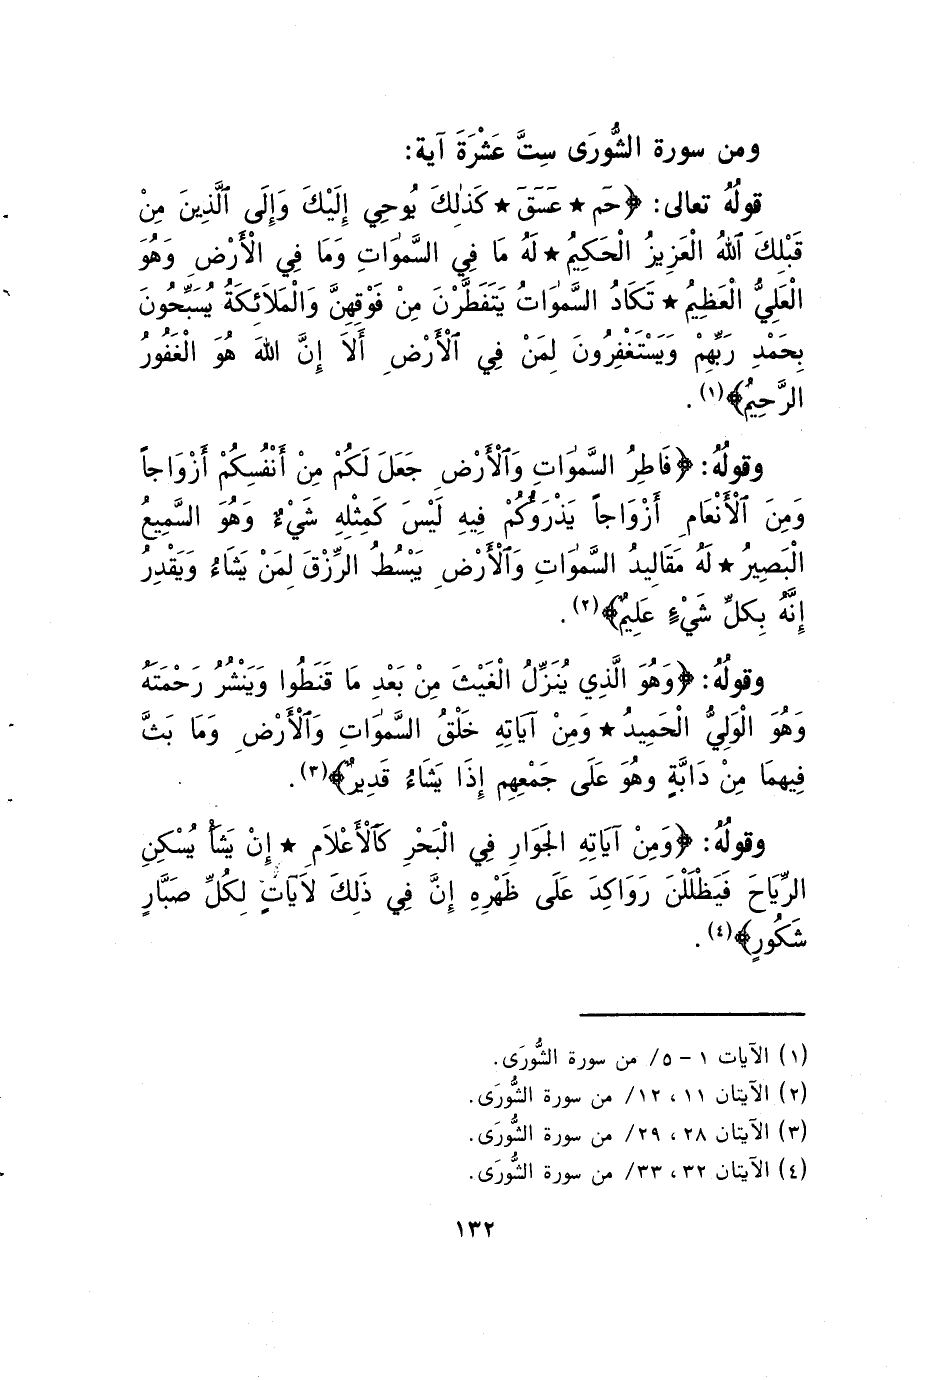 ومن سورة الشُّورَى سِتَّ عَشْرَةَ آية:
قولُهُ تعالى: ﴿حَم ★ عَسَقَ ★ كَذٰلِكَ يُوحِي إِلَيْكَ وَإِلَى ٱلَّذِينَ مِنْ
قَبْلِكَ ٱللهُ الْعَزِيزُ الْحَكِيمُ ★ لَهُ مَا فِي السَّمٰوَاتِ وَمَا فِي الْأَرْضِ وَهُوَ
الْعَلِيُّ الْعَظِيمُ ★ تَكَادُ السَّمٰوَاتُ يَتَفَطَّرْنَ مِنْ فَوْقِهِنَّ وَالْمَلَائِكَةُ يُسَبِّحُونَ
بِحَمْدِ رَبِّهِمْ وَيَسْتَغْفِرُونَ لِمَنْ فِي ٱلْأَرْضِ أَلَا إِنَّ اللهَ هُوَ الْغَفُورُ
الرَّحِيمُ﴾(١).
وقولُهُ: ﴿فَاطِرُ السَّمٰوَاتِ وَٱلْأَرْضِ جَعَلَ لَكُمْ مِنْ أَنْفُسِكُمْ أَزْوَاجاً
وَمِنَ ٱلْأَنْعَامِ أَزْوَاجاً يَذْرَؤُكُمْ فِيهِ لَيْسَ كَمِثْلِهِ شَيْءٌ وَهُوَ السَّمِيعُ
الْبَصِيرُ ★ لَهُ مَقَالِيدُ السَّمٰوَاتِ وَٱلْأَرْضِ يَبْسُطُ الرِّزْقَ لِمَنْ يَشَاءُ وَيَقْدِرُ
إِنَّهُ بِكلِّ شَيْءٍ عَلِيمٌ﴾(٢).
وقولُهُ: ﴿وَهُوَ الَّذِي يُنَزِّلُ الْغَيْثَ مِنْ بَعْدِ مَا قَنَطُوا وَيَنْشُرُ رَحْمَتَهُ
وَهُوَ الْوَلِيُّ الْحَمِيدُ ★ وَمِنْ آيَاتِهِ خَلْقُ السَّمٰوَاتِ وَٱلْأَرْضِ وَمَا بَثَّ
فِيهِمَا مِنْ دَابَّةٍ وهُوَ عَلَى جَمْعِهِم إِذَا يَشَاءُ قَدِيرٌ﴾(٣).
وقولُهُ: ﴿وَمِنْ آيَاتِهِ الجَوَارِ فِي الْبَحْرِ كَٱلْأَعْلَامِ ★ إِنْ يَشَأْ يُسْكِنِ
الرِّيَاحَ فَيَظْلَلْنَ رَوَاكِدَ عَلَى ظَهْرِهِ إِنَّ فِي ذَلِكَ لَآيَاتٍ لِكُلِّ صَبَّارٍ
شَكُورٍ﴾(٤).
(١) الآيات ١ - ٥/ من سورة الشُّورَى.
(٢) الآيتان ١١، ١٢/ من سورة الشُّورَى.
(٣) الآيتان ٢٨، ٢٩/ من سورة الشُّورَى.
(٤) الآيتان ٣٢، ٣٣/ من سورة الشُّورَى.
١٣٢